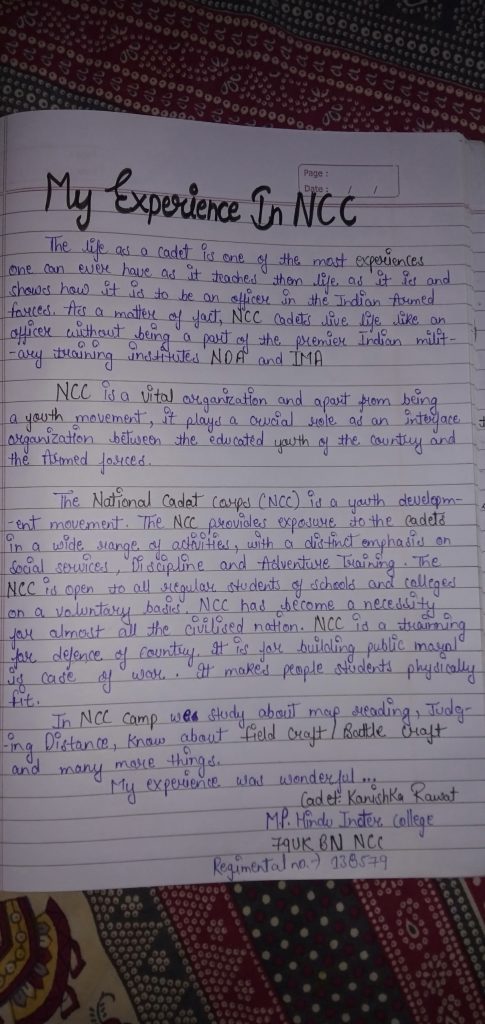 Page :
Date : / /
My Experience In NCC
The life as a cadet is one of the most experiences
one can ever have as it teaches them life as it is and
shows how it is to be an officer in the Indian Armed
forces. As a matter of fact, NCC cadets live life like an
officer without being a part of the premier Indian milit-
-ary training institutes NDA and IMA
NCC is a vital organization and apart from being
a youth movement, it plays a crucial role as an interface
organization between the educated youth of the country and
the Armed forces.
The National Cadet Corps (NCC) is a youth developm-
-ent movement. The NCC provides exposure to the cadets
in a wide range of activities, with a distinct emphasis on
social services, Discipline and Adventure Training. The
NCC is open to all regular students of schools and colleges
on a voluntary basis. NCC has become a necessity
for almost all the civilised nation. NCC is a training
for defence of country. It is for building public moral
is case of war. It makes people students physically
fit.
In NCC Camp we study about map reading, Judg-
-ing Distance, Know about field craft / Battle craft
and many more things.
My experience was wonderful ...
Cadet: Kanishka Rawat
MP. Hindu Inter College
79UK BN NCC
Regimental no. → 138579